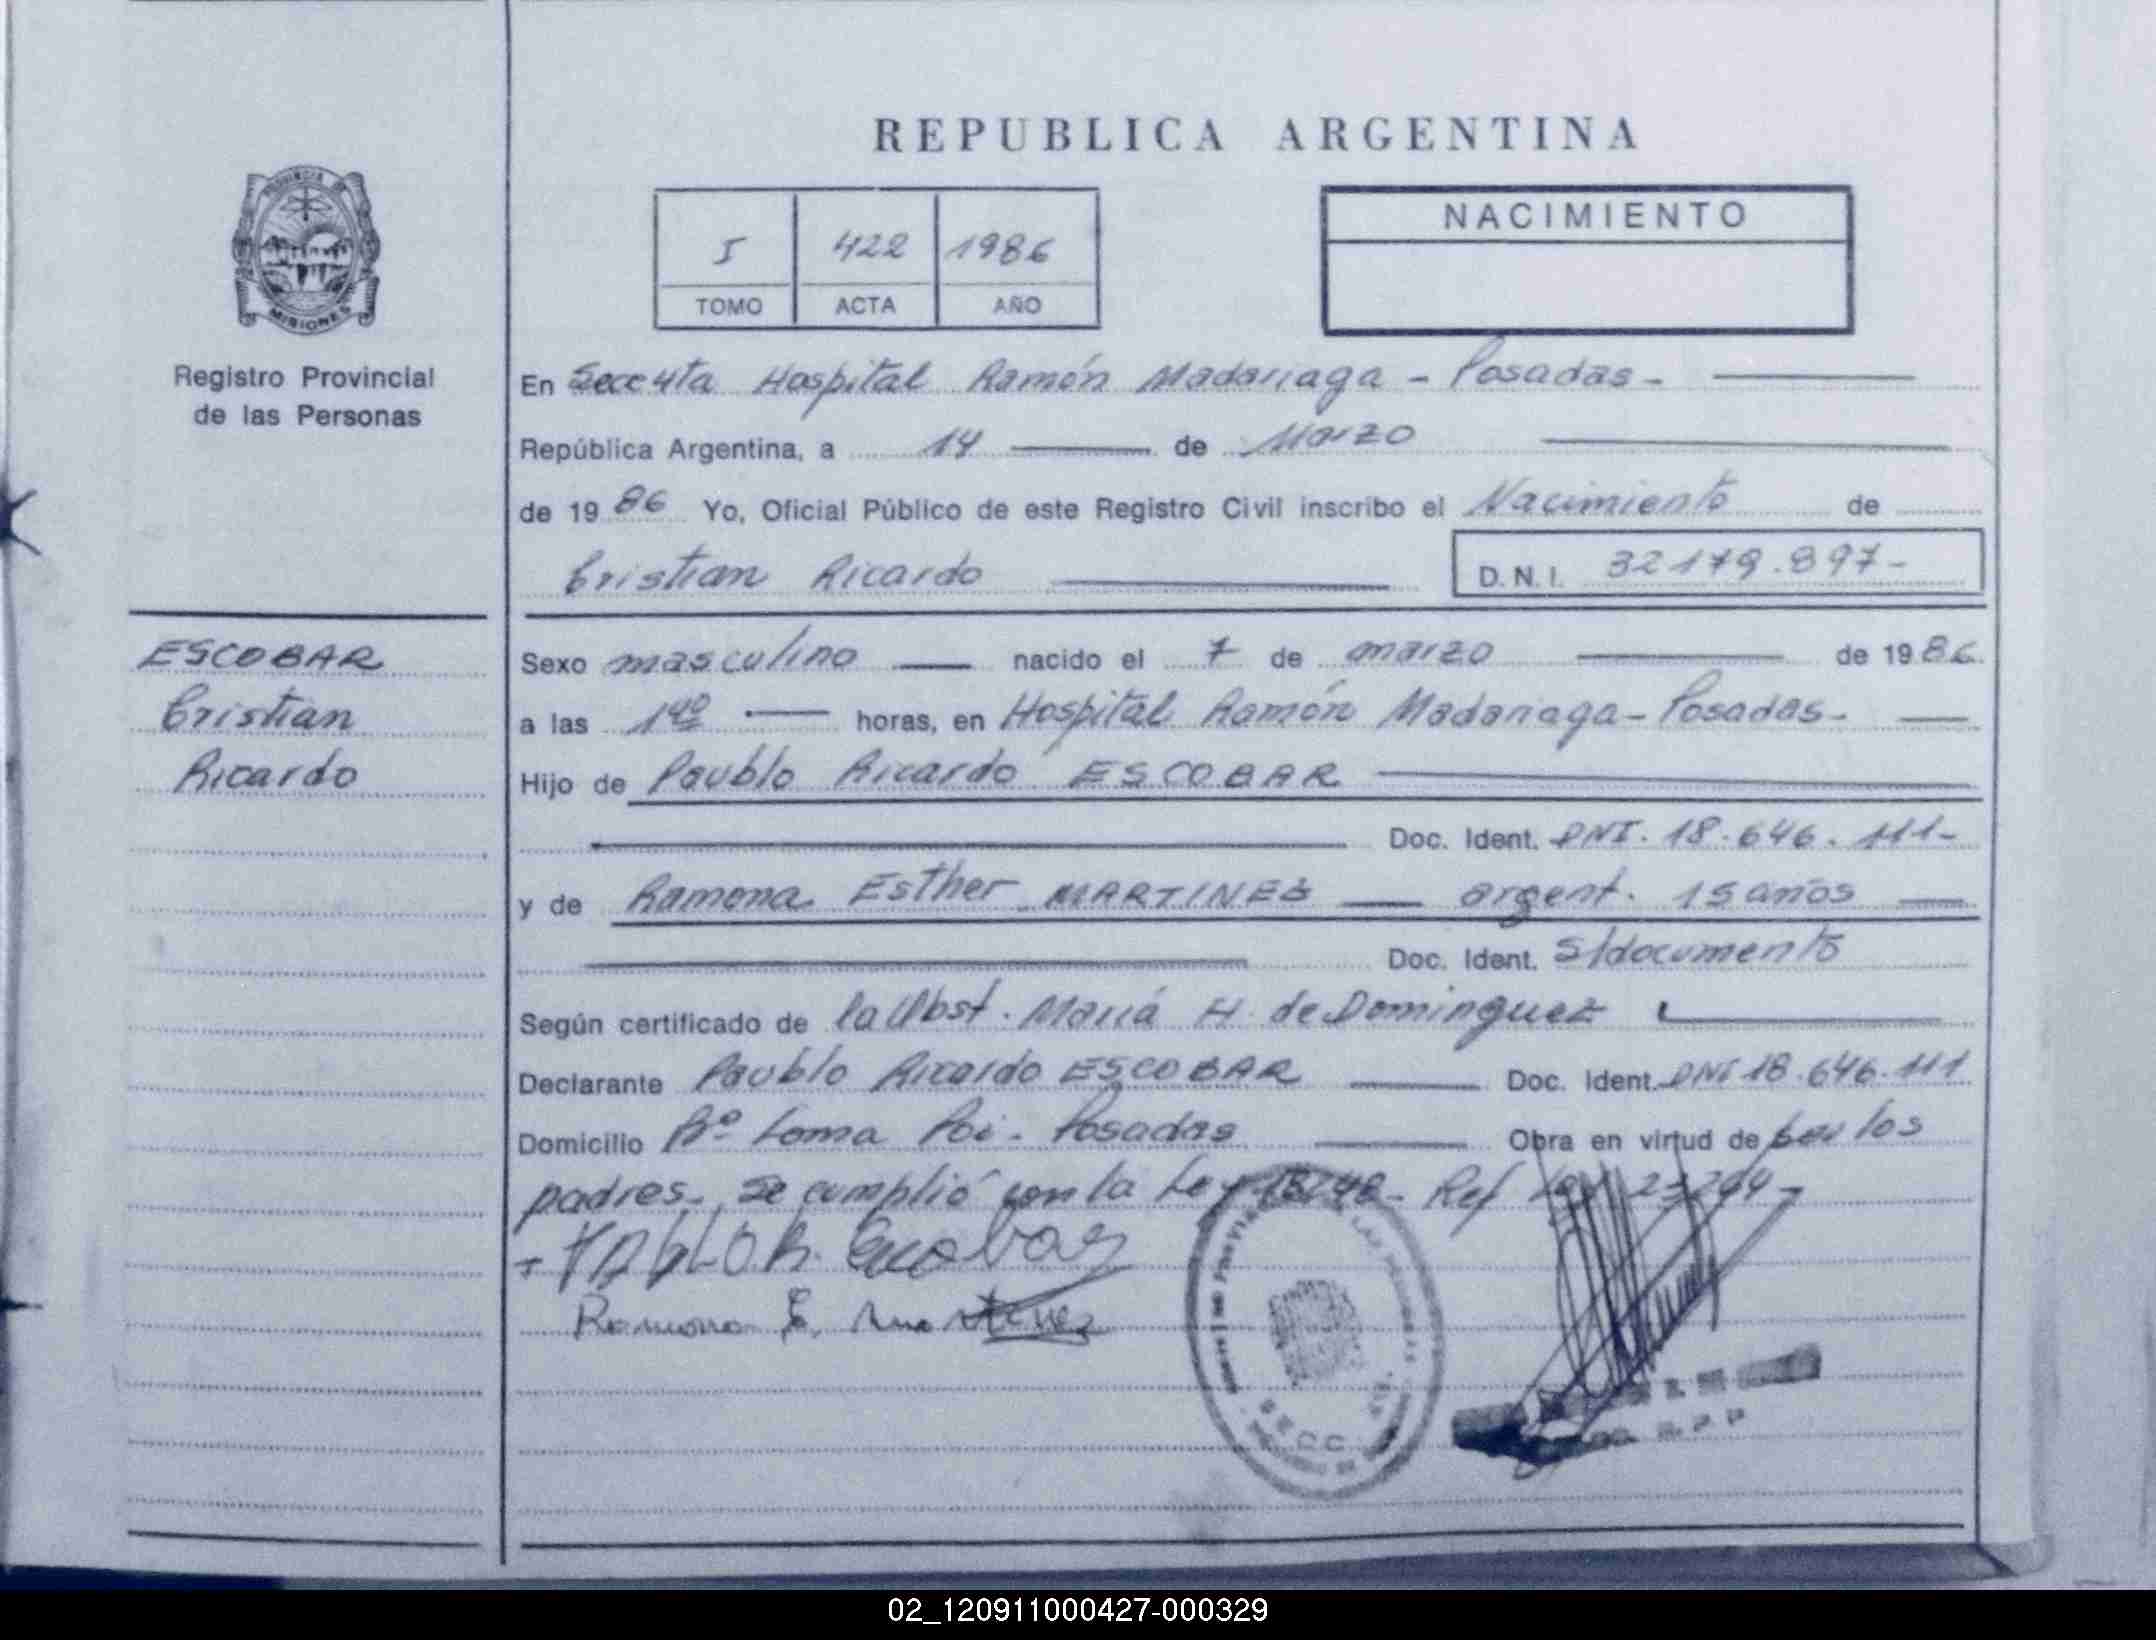 REPUBLICA ARGENTINA
PROVINCIA DE
MISIONES
Registro Provincial
de las Personas
I 422 1986
TOMO ACTA AÑO
NACIMIENTO
En Hospital Ramón Madariaga - Posadas -
República Argentina, a 14 de Marzo
de 1986 Yo, Oficial Público de este Registro Civil inscribo el Nacimiento de
Cristian Ricardo D.N.I. 32179.897-
ESCOBAR
Cristian
Ricardo
Sexo masculino nacido el 7 de marzo de 1986.
a las horas, en Hospital Ramón Madariaga - Posadas -
Hijo de Paublo Ricardo ESCOBAR
Doc. Ident. DNI. 18.646.111-
y de Ramona Esther MARTINES argent. 15 años
Doc. Ident. S/documento
Según certificado de la Obst. María H. de Dominguez
Declarante Paublo Ricardo ESCOBAR Doc. Ident. DNI 18.646.111
Domicilio Bº Loma Poi - Posadas Obra en virtud de ser los
padres. Se cumplió con la Ley 18248 - Ref Ley 23264 -
PABLO R. Escobar
Ramona E. Martinez
SECC
02_120911000427-000329